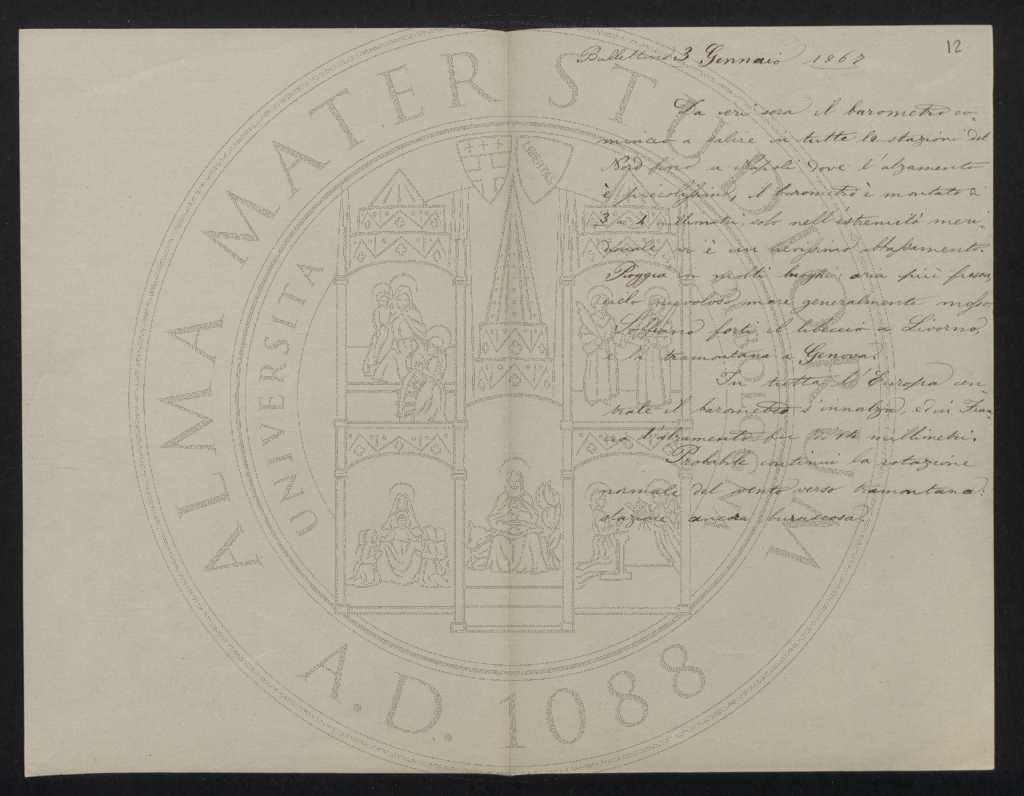 12
Bullettino 3 Gennaio 1867
Da ieri sera il barometro co-
minciò a salire in tutte le stazioni del
Nord fino a Napoli dove l'alzamento
è piccolissimo, il barometro è montato di
3 a 4 solo nell'estremità meri-
dionale vi è un leggerissimo abbassamento.
Pioggia in molti luoghi, aria più fresca,
cielo nuvoloso, mare generalmente mosso.
Soffiano forti il libeccio a Livorno,
e la tramontana a Genova.
In tutta l'Europa cen-
trale il barometro s'innalza, ed in Fran-
cia l'alzamento fu millimetri.
Probabile continui la rotazione
normale del vento verso tramontana:
stagione ancora burascosa.
ALMA MATER STUDIORUM
UNIVERSITÀ DI BOLOGNA
LIBERTAS
A.D. 1088